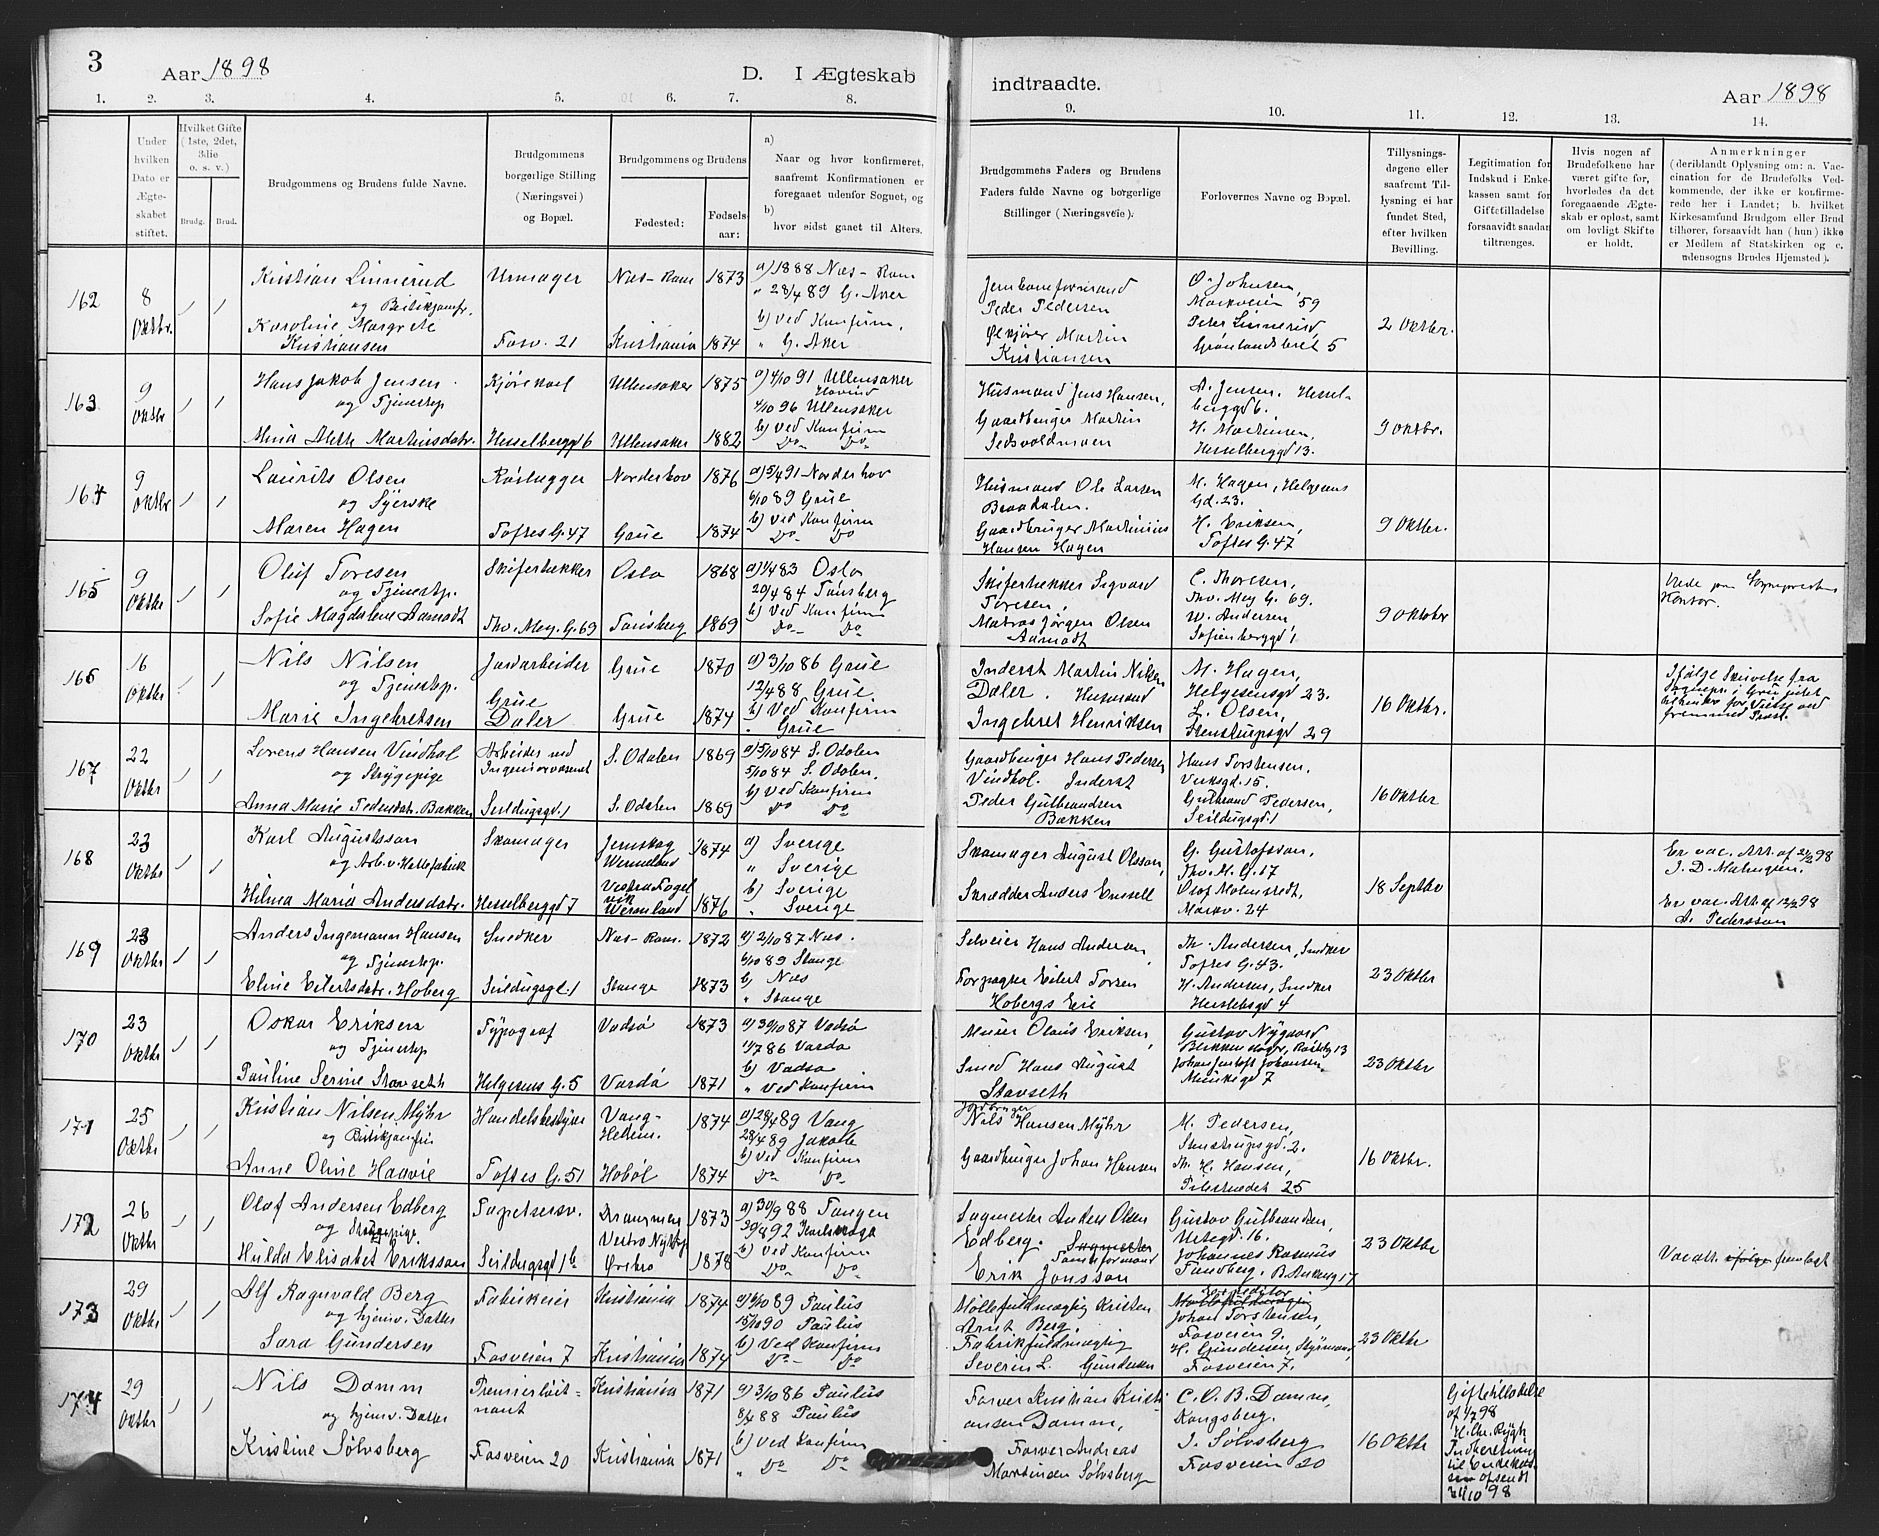 3
Aar 1898
D. I Ægteskab
indtraadte.
Aar 1898
1. 2. 3. 4. 5. 6. 7. 8. 9. 10. 11. 12. 13. 14.
Under hvilken Dato er Ægteskabet stiftet.
Hvilket Gifte (1ste, 2det, 3die o. s. v.)
Brudg. Brud.
Brudgommens og Brudens fulde Navne.
Brudgommens borgerlige Stilling (Næringsvei) og Bopæl.
Brudgommens og Brudens
Fødested: Fødselsaar:
a) Naar og hvor konfirmeret, saafremt Konfirmationen er foregaaet udenfor Sognet, og
b) hvor sidst gaaet til Alters.
Brudgommens Faders og Brudens Faders fulde Navne og borgerlige Stillinger (Næringsveie):
Forlovernes Navne og Bopæl.
Tillysningsdagene eller saafremt Tillysning ei har fundet Sted, efter hvilken Bevilling.
Legitimation for Indskud i Enkekassen samt for Giftetilladelse forsaavidt saadan tiltrænges.
Hvis nogen af Brudefolkene har været gifte før, hvorledes da det foregaaende Ægteskab er opløst, samt om lovligt Skifte er holdt.
Anmerkninger (deriblandt Oplysning om: a. Vaccination for de Brudefolks Vedkommende, der ikke er konfirmerede her i Landet; b. hvilket Kirkesamfund Brudgom eller Brud tilhører, forsaavidt han (hun) ikke er Medlem af Statskirken og c. udensogns Brudes Hjemsted).
162 8 Oktbr.
Kristian Linnerud Urmager Næs-Rom 1873 a) 1888 Næs-Rom
og Butikjomfr. " 28/4 89 G. Aker
Karoline Margrete Kristiansen Fosv. 21 Kristiania 1874 b) Ved Konfirm. " G. Aker
Jernbaneformand Peder Pedersen
Ølkjører Martin Kristiansen
O. Johnsen, Markveien 59
Peter Linnerud, Grønlandsleret 5
2 Oktbr.
163 9 Oktbr
Hans Jakob Jensen Kjørekarl Ullensaker 1875 a) 4/10 91 Ullensaker Hovind
og Tjenestep 4/10 96 Ullensaker
Mina Alette Martinsdatr. Hesselberggd 6 Ullensaker 1882 b) Ved Konfirm Do Do
Husmand Jens Hansen,
Gaardbruger Martin
A. Jensen, Hesselberggd 6.
H. Martinsen, Hesselberggd 13.
9 Oktbr.
164 9 Oktbr
Laurits Olsen Norderhov 1876 a) 5/4 91 Norderhov
og Syerske 6/10 89 Grue
Maren Hagen Toftes G. 47 Grue 1874 b) Ved Konfirm Do Do
Husmand Ole Larsen
Gaardbruger Martinius Hansen Hagen
M. Hagen, Helgesens Gd. 23.
H. Eriksen, Toftes G. 47
9 Oktbr.
165 9 Oktbr
Oluf Toresen Skifertækker Oslo 1868 a) 1/4 83 Oslo
og Tjenestep. 20/4 84 Tønsberg
Sofie Magdalene Aamodt Thv. Mey. G. 69 Tønsberg 1869 b) Ved Konfirm Do Do
Skifertækker Sigvard Toresen,
Matros Jørgen Olsen Aamodt
C. Thoresen, Thv. Mey G. 69.
W. Andersen, Sofienberggd 1
9 Oktober
Viede paa Sogneprestens Kontor.
166 16 Oktbr
Nils Nilsen Jordarbeider Grue 1870 a) 3/10 86 Grue
og Tjenestep. Grue 12/4 88 Grue
Marie Ingebretsen Daler Grue 1874 b) Ved Konfirm Grue
Inderst Martin Nilsen Daler. Husmand
Ingebret Henriksen
M. Hagen, Helgesensgd 23.
L. Olsen, Stenstrupsgd 29
16 Oktbr.
Ifølge Skrivelse fra
167 22 Oktbr
Lorens Hansen Vindhol Arbeider ved Ingeniørvæsenet S. Odalen 1869 a) 5/10 84 S. Odalen
og Strygepige 5/10 84 S. Odalen.
Anna Marie Pedersdatr. Bakken Seildugsgd. 1 S. Odalen 1869 b) Ved Konfirm Do Do
Gaardbruger Hans Pedersen Vindhol. Inderst
Peder Gulbrandsen Bakken
Hans Torstensen, Verksgd. 15.
Gulbrand Pedersen, Seildugsgd 1
16 Oktbr
168 23 Oktbr
Karl Augustsson Skomager Jernskog Wermeland 1874 a) Sverige
og Arb. v. " Sverige
Hilma Maria Andersdatr. Hesselberggd 7 Vestra Fogelvik Wermland 1876 b) Sverige " Sverige
Skomager August Olsson,
Skrædder Anders
G. Gustafsson, Thv. M. G. 17
Olaf Malmstedt, Markv. 24
18 Septbr
Er vac. Att. af
Er vac. Att. af 12/2 98 A. Pedersson
169 23 Oktbr
Anders Ingemann Hansen Snedker Næs-Rom. 1872 a) 2/10 87 Næs.
og Tjenestep. 6/10 89 Stange
Eline Eilertsdatr. Hoberg Seildugsgd. 1 Stange 1873 b) Næs " Stange
Selveier Hans Andersen,
Forpagter Eilert Torsen Hobergs Eie
Th. Andersen, Snedker Toftes G. 43.
H. Andersen, Snedker Herslebsgd 4
23 Oktbr
170 23 Oktbr
Oskar Eriksen Typograf Vadsø 1873 a) 30/10 87 Vadsø
og Tjenestep 11/7 86 Vardø
Pauline Serine Stavseth Helgesens G. 5 Vardø 1871 b) Vadsø " Ved Konfirm
Murer Olaus Eriksen,
Smed Hans August Stavseth
Gustav Nygaard
Johansen Munkegd 7
23 Oktbr
171 25 Oktbr
Kristian Nilsen Myhr Handelsbestyrer Vang-Hedem. 1874 a) 28/4 89 Vang
og Butikjomfru 28/4 89 Jakobs
Anne Oline Haavie Toftes G. 51 Hobøl 1874 b) Ved Konfirm Do Do
Jordbruger Nils Hansen Myhr
Gaardbruger Johan Hansen
M. Pedersen, Stenstrupsgd. 2.
Th. H. Hansen, Pilestrædet 25
16 Oktbr.
172 26 Oktbr
Olaf Andersen Edberg Tapetserer Drammen 1873 a) 30/9 88 Tangen
og 30/4 92 Karlskoga
Hulda Elisabet Eriksson Seildugsgd 1b Ørebro 1878 b) Ved Konfirm Do Do
Sagmester Anders Olsen Edberg. Sagmester
Erik Jonsson
Gustav Gulbrandsen, Urtegd. 16.
Johannes Rasmus Tandberg,
23 Oktbr
Vac. att. ifølge fremlagt
173 29 Oktbr
Alf Ragnvald Berg Fabrikeier Kristiania 1874 a) 6/10 89 Paulus
og hjemv. Datter 15/10 90 Paulus
Sara Gundersen Fosveien 7 Kristiania 1874 b) Ved Konfirm Do Do
Møllefuldmægtig Kristen Arnt Berg.
Fabrikfuldmægtig Severin L. Gundersen
Expeditør Møllefuldmægtig Johan Torstensen, Fosveien 9.
H. Gundersen, Styrmand, Fosveien 7.
23 Oktbr
174 29 Oktbr
Nils Damm Premierløitnant Kristiania 1871 a) 3/10 86 Paulus
og hjemv. Datter 8/4 88 Paulus
Kristine Sølvsberg Fosveien 20 Kristiania 1871 b) Ved Konfirm " Do Do
Farver Kristian Kristiansen Damm,
Farver Andreas Martinsen Sølvsberg
C. O. B. Damm, Kongsberg.
J. Sølvsberg Fosveien 20
16 Oktbr
Giftetilladelse af 1/7 98 H. Chr. Rygh